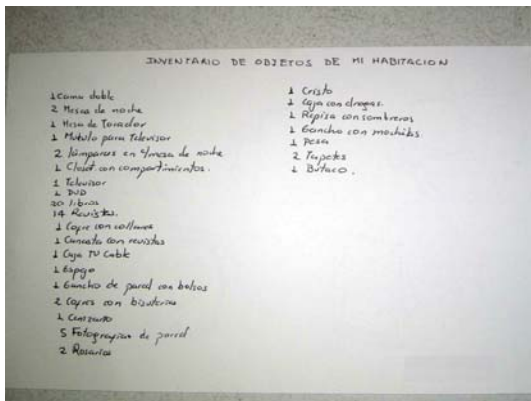 INVENTARIO DE OBJETOS DE MI HABITACION
1 Cama doble
2 Mesas de noche
1 Mesa de Tocador
1 Mueble para Televisor
2 lámparas en c/mesa de noche
1 Closet con compartimientos.
1 Televisor
1 DVD
20 libros
14 Revistas.
1 Cofre con collares
1 Canasta con revistas
1 Caja TV Cable
1 Espejo
1 Gancho de pared con bolsos
2 Cofres con bisuterias
1 Cenicero
5 Fotografias de pared
2 Rosarios
1 Cristo
1 Caja con drogas.
1 Repisa con sombreros
1 Gancho con mochilas.
1 Pesa
2 Tapetes
1 Butaco.